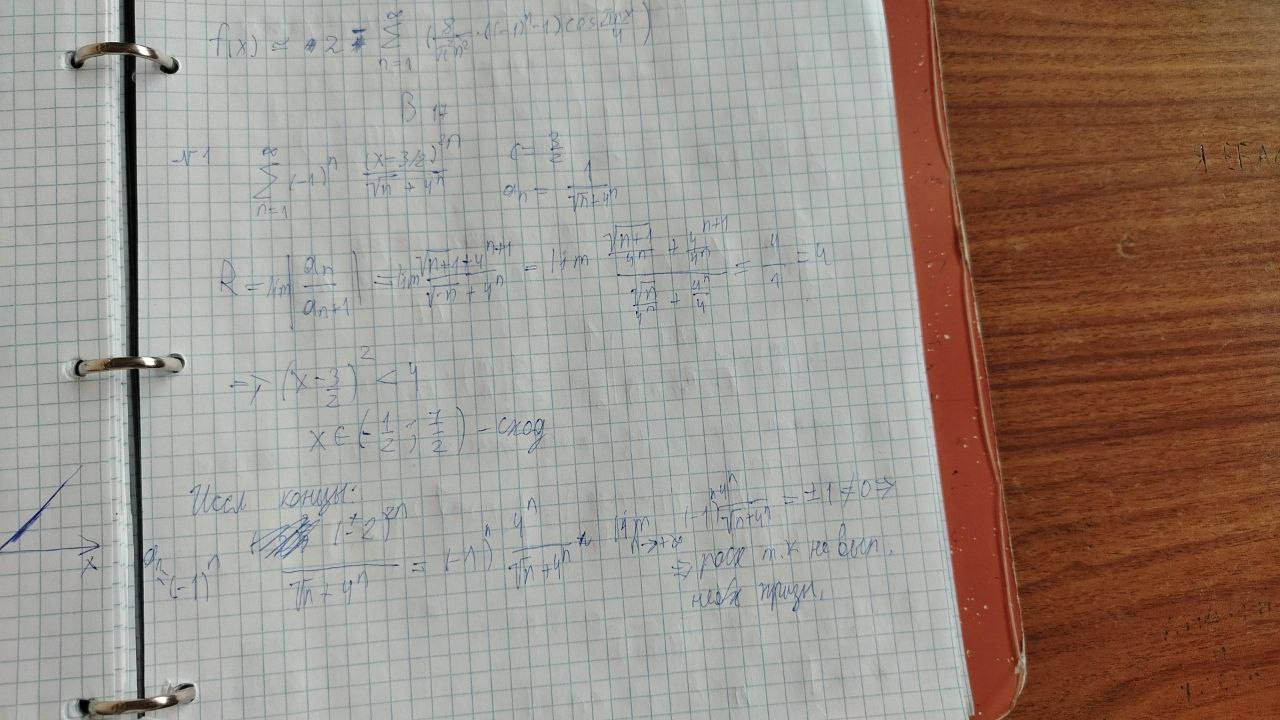 f(x) ~ 2 - ∑ n=1 ∞ (8/π²n² · ((-1)ⁿ-1) cos πnx/4)
В 17
№1 ∑ n=1 ∞ (-1)ⁿ (x-3/2)²ⁿ / √n + 4ⁿ c = 3/2
aₙ = 1/√n+4ⁿ
R = lim |aₙ / aₙ₊₁| = lim √n+1 + 4ⁿ⁺¹ / √n + 4ⁿ = lim (√n+1/4ⁿ + 4ⁿ⁺¹/4ⁿ) / (√n/4ⁿ + 4ⁿ/4) = 4/1 = 4
=> (x - 3/2)² < 4
x ∈ (-1/2; 7/2) - сход
Иссл концы:
aₙ = (-1)ⁿ (±2)²ⁿ / √n + 4ⁿ = (-1)ⁿ 4ⁿ / √n + 4ⁿ lim n→+∞ (-1)ⁿ 4ⁿ / √n+4ⁿ = ±1 ≠ 0 =>
=> расх т.к не вып.
необх призн.
x